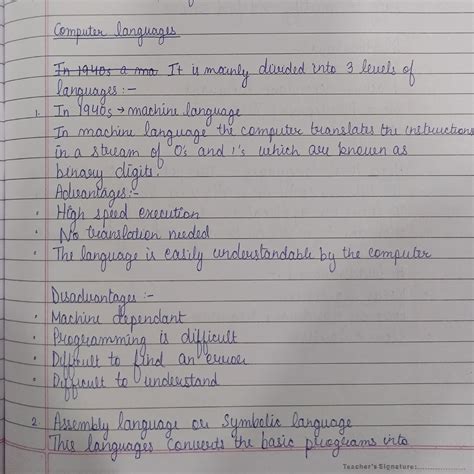 Computer languages
In 1940s a ma It is mainly divided into 3 levels of
languages :-
1. In 1940s → machine language
In machine language the computer translates the instructions
in a stream of 0's and 1's which are known as
binary digits.
Advantages:-
• High speed execution
• No translation needed
• The language is easily understandable by the computer
Disadvantages :-
• Machine dependant
• Programming is difficult
• Difficult to find an error
• Difficult to understand
2. Assembly language or Symbolic language
This languages converts the basic programs into
Teacher's Signature: